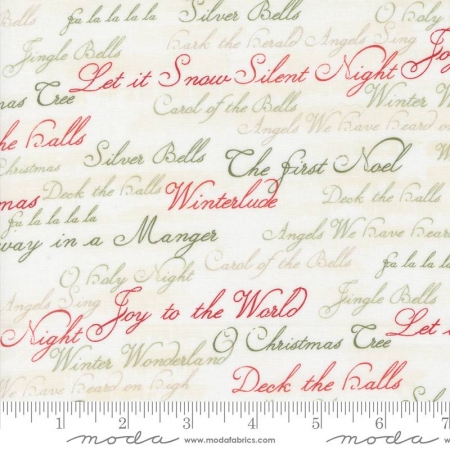 Bells fa la la la la Silver Bells O Holy
Jingle Bells Hark the Herald Angels Sing Joy
Let it Snow Silent Night
mas Tree Carol of the Bells Winter Wo
the Halls Angels We Have heard on
Silver Bells The First Noel
Christmas
mas Deck the Halls Winterlude Deck the Halls
fa la la la la
way in a Manger Angels We Have hear
O Holy Night Carol of the Bells fa la la la
Angels Sing Joy to the World Jingle Bells
Night O Christmas Tree Let i
Winter Wonderland
We Have heard on high Deck the Halls
1 2 3 4 5 6 7
moda www.modafabrics.com moda